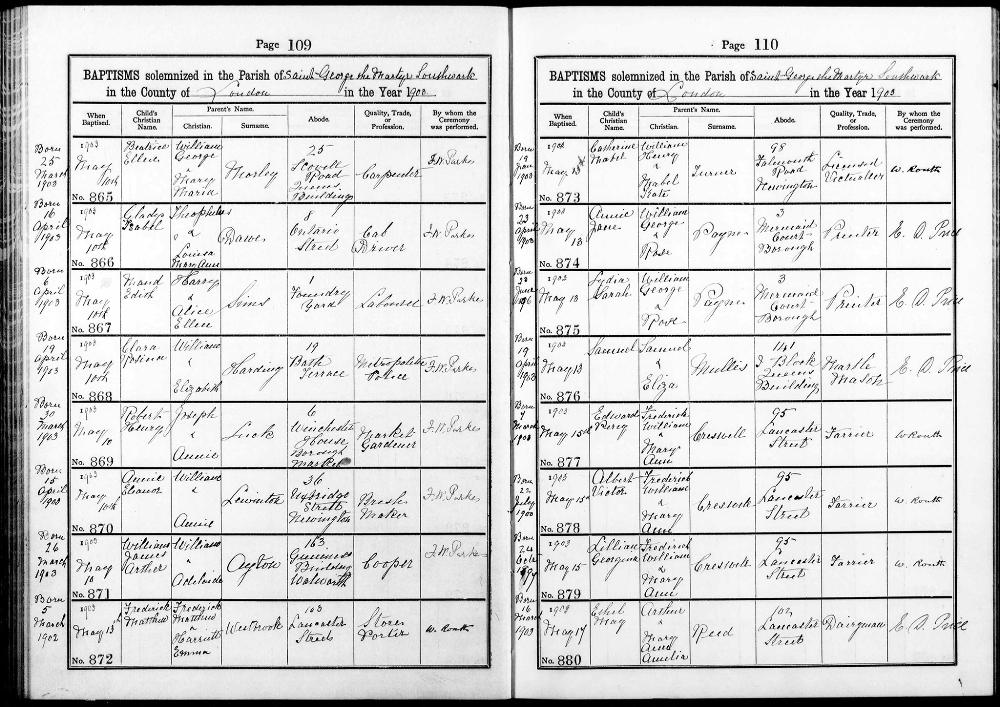 Page 109
BAPTISMS solemnized in the Parish of Saint George the Martyr Southwark
in the County of London in the Year 1903
When Baptised. Child's Christian Name. Parent's Name. Christian. Surname. Abode. Quality, Trade, or Profession. By whom the Ceremony was performed.
Born 25 March 1903 1903 May 10th No. 865 Beatrice Ellen William George & Mary Maria Morley 25 Scovell Road Queens Buildings Carpenter F.W. Parkes
Born 16 April 1903 1903 May 10th No. 866 Gladys Isabel Theophilus & Louisa Mary Ann Dawes 8 Ontario Street Cab Driver F.W. Parkes
Born 6 April 1903 1903 May 10th No. 867 Maud Edith Harry & Alice Ellen Sims 1 Foundry Yard Labourer F.W. Parkes
Born 19 April 1903 1903 May 10th No. 868 Clara William & Elizabeth Harding 19 Bath Terrace Metropolitan Police F.W. Parkes
Born 30 March 1903 1903 May 10 No. 869 Robert Henry Joseph & Annie Luck 6 Winchester House Borough Market Market Gardener F.W. Parkes
Born 15 April 1903 1903 May 10th No. 870 Annie Eleanor William & Annie 36 Uxbridge Street Newington Brush Maker F.W. Parkes
Born 26 March 1903 1903 May 10 No. 871 William James Arthur William & Adelaide Ayton 163 Guinness Buildings Walworth Cooper F.W. Parkes
Born 5 March 1902 1903 May 13 No. 872 Frederick Matthew Frederick Matthew & Harriett Emma Westbrook 103 Lancaster Street Store Porter W. Routh
Page 110
BAPTISMS solemnized in the Parish of Saint George the Martyr Southwark
in the County of London in the Year 1903
When Baptised. Child's Christian Name. Parent's Name. Christian. Surname. Abode. Quality, Trade, or Profession. By whom the Ceremony was performed.
Born 19 Jan 1903 1903 May 13th No. 873 Catherine Mabel William Henry & Mabel Kate Turner 98 Falmouth Road Newington Licensed Victualler W. Routh
Born 23 April 1903 1903 May 13 No. 874 Annie Jane William George & Rose Payne 3 Mermaid Court Borough Printer E. D. Price
Born 28 June 1903 May 13 No. 875 Lydia Sarah William George & Rose Payne 3 Mermaid Court Borough Printer E. D. Price
Born 19 April 1903 1903 May 13 No. 876 Samuel Samuel & Eliza Mullis 141 J Block Queens Buildings Marble Mason E. D. Price
Born 7 March 1903 1903 May 15th No. 877 Edward Percy Frederick William & Mary Ann Creswell 95 Lancaster Street Farrier W Routh
Born 22 July 1900 1903 May 15th No. 878 Albert Victor Frederick William & Mary Ann Creswell 95 Lancaster Street Farrier W. Routh
Born 24 Oct 1897 1903 May 15 No. 879 Lillian Georgina Frederick William & Mary Ann Creswell 95 Lancaster Street Farrier W. Routh
Born 16 March 1903 1903 May 17 No. 880 Ethel May Arthur & Mary Ann Amelia Reed 102 Lancaster Street Dairyman E. D. Price